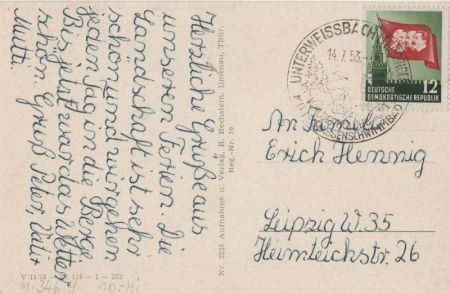 Herzliche Grüße aus
unseren Ferien. Die
Landschaft ist sehr
schön und wir gehen
jeden Tag in die Berge
Bis jetzt war das Wetter
schön. Gruß Peter,
Mutti.
V 11/28 116 — 1 — 252
Nr. 2235 Aufnahme u. Verlag, R. Bechstein, Ilmenau, Thür.
Reg.-Nr. 16
UNTERWEISSBACH
14.7.53
DEUTSCHE
DEMOKRATISCHE REPUBLIK
12
An Familie
Erich Hennig
Leipzig W. 35
Heimteichstr. 26